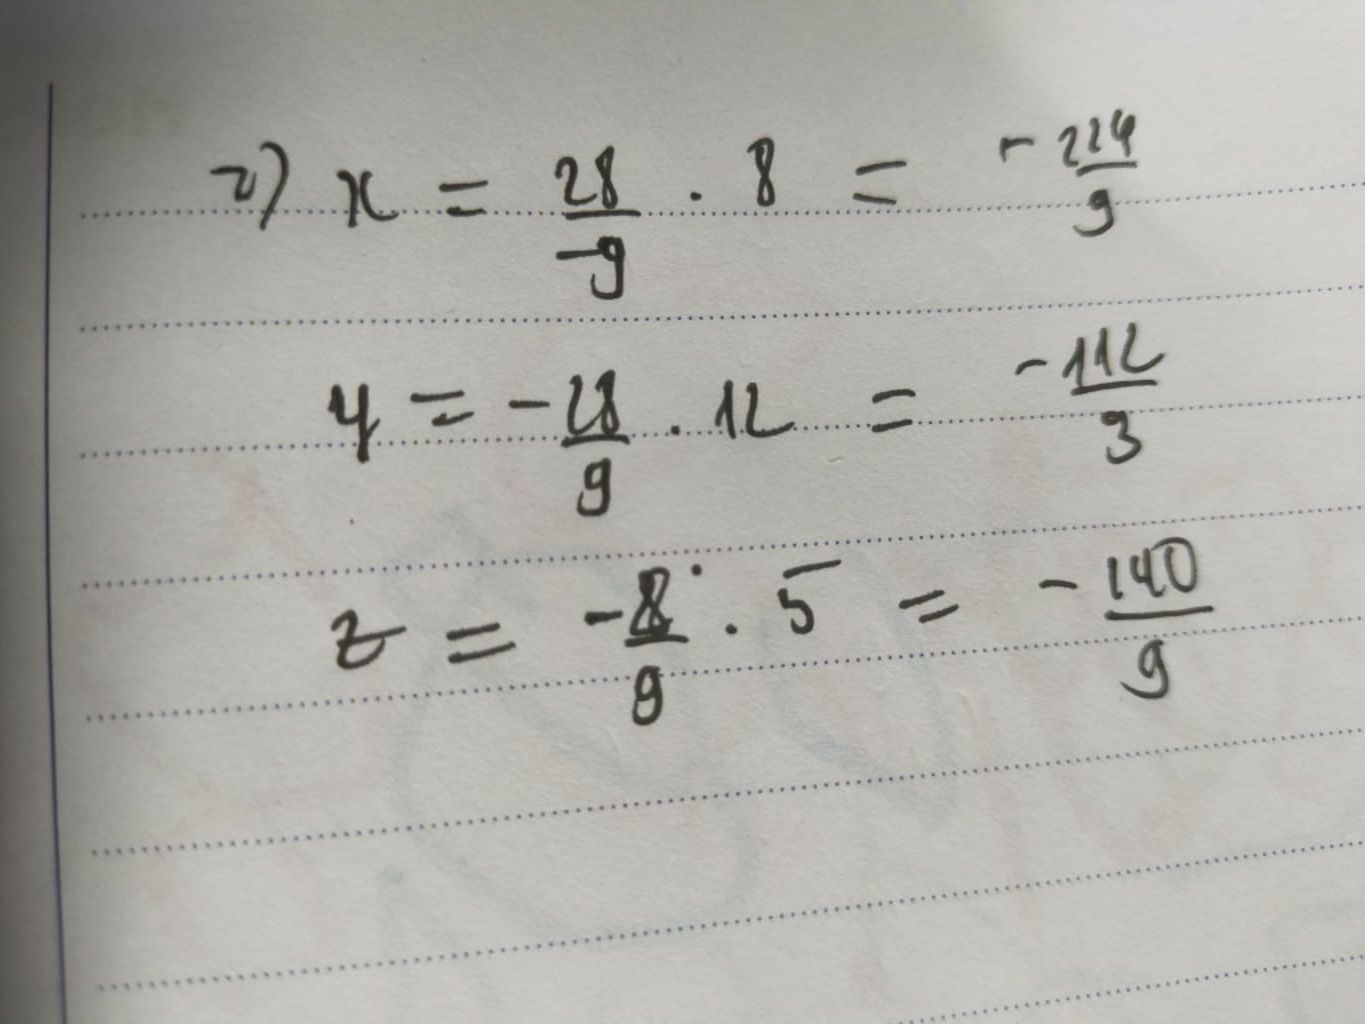 2) x = 28/-9 . 8 = -224/9
y = -28/9 . 12 = -112/3
z = -8/9 . 5 = -140/9